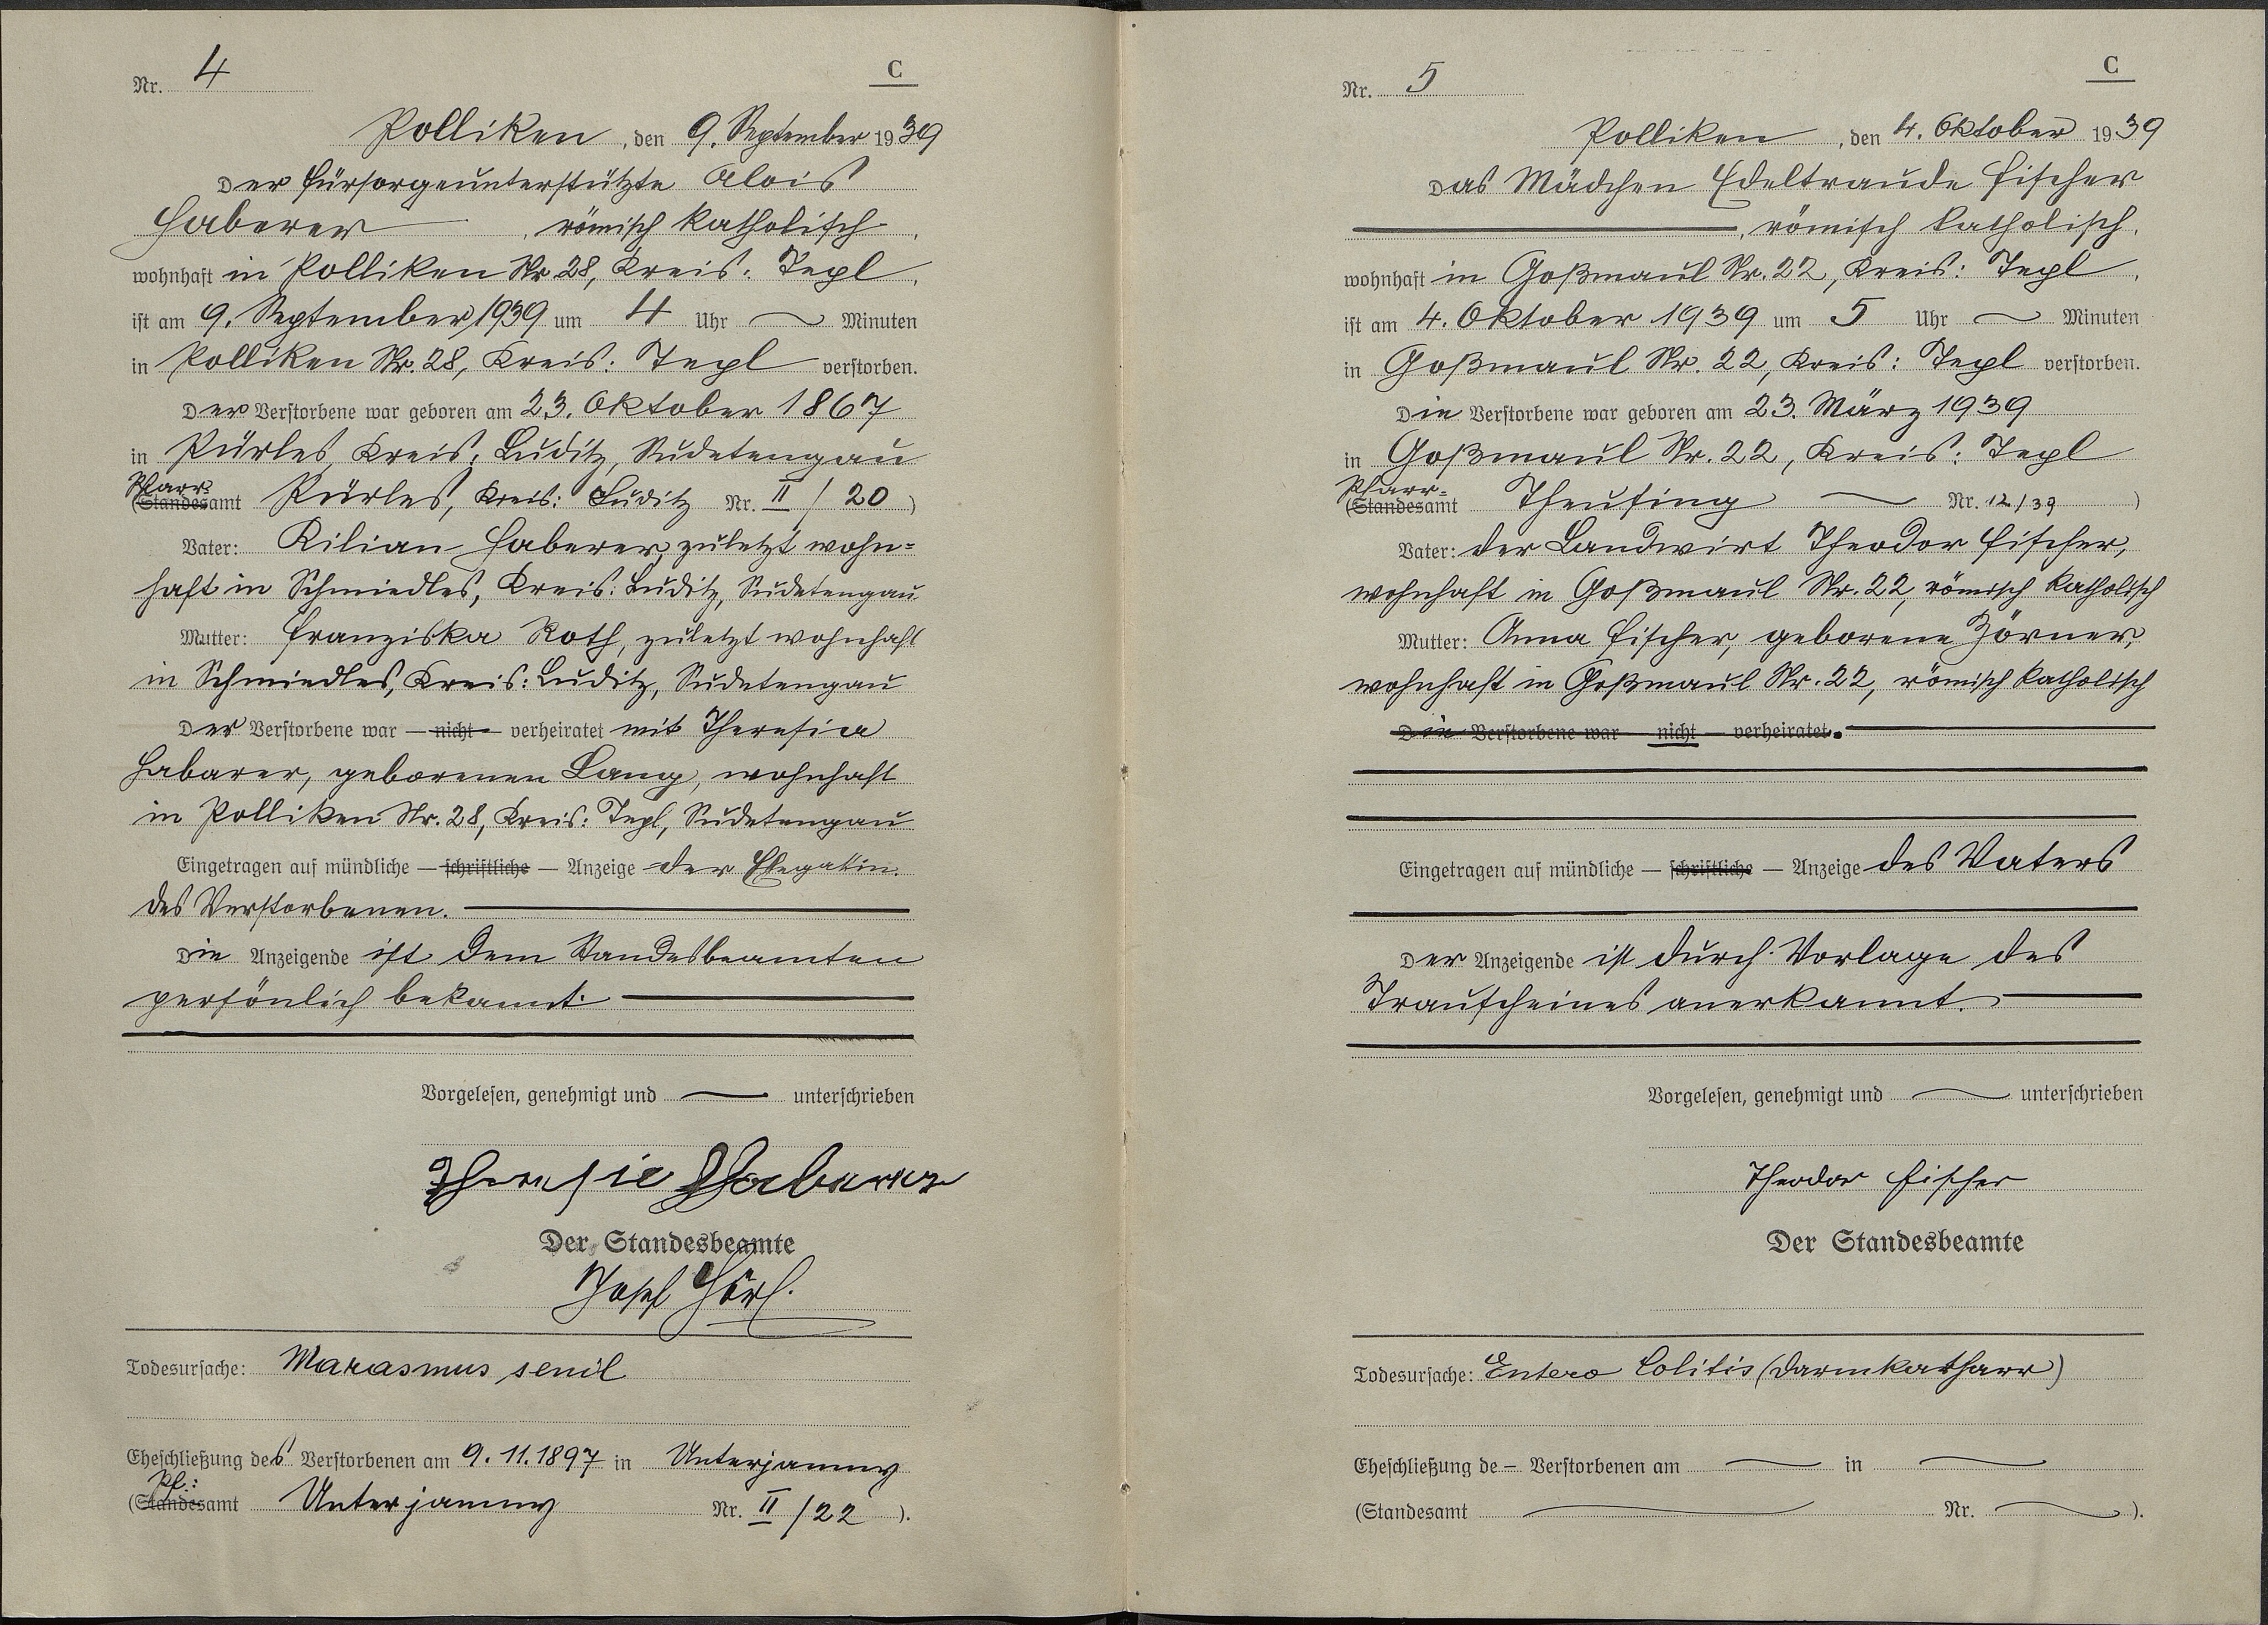 Nr. 4
C
Polliken, den 9. September 1939
Der Fürsorgeunterstützte Alois
Haberer, römisch katholisch,
wohnhaft in Polliken Nr. 28, Kreis: Tepl,
ist am 9. September 1939 um 4 Uhr — Minuten
in Polliken Nr. 28, Kreis: Tepl verstorben.
Der Verstorbene war geboren am 23. Oktober 1867
in Pürles, Kreis: Luditz, Sudetengau
Pfarr-
(Standesamt Pürles, Kreis: Luditz Nr. II / 20)
Vater: Kilian Haberer, zuletzt wohn=
haft in Schmiedles, Kreis: Luditz, Sudetengau
Mutter: Franziska Roth, zuletzt wohnhaft
in Schmiedles, Kreis: Luditz, Sudetengau
Der Verstorbene war — nicht — verheiratet mit Theresia
Habarer, geborenen Lang, wohnhaft
in Polliken Nr. 28, Kreis: Tepl, Sudetengau
Eingetragen auf mündliche — schriftliche — Anzeige der Ehegattin
des Verstorbenen.
Die Anzeigende ist dem Standesbeamten
persönlich bekannt.
Vorgelesen, genehmigt und — unterschrieben
Theresie Habarer
Der Standesbeamte
Josef
Todesursache: Marasmus senil
Eheschließung des Verstorbenen am 9. 11. 1897 in Unterjamny
Pf.:
(Standesamt Unterjamny Nr. II / 22).
Nr. 5
C
Polliken, den 4. Oktober 1939
Das Mädchen Edeltraude Fischer
, römisch katholisch,
wohnhaft in Goßmaul Nr. 22, Kreis: Tepl,
ist am 4. Oktober 1939 um 5 Uhr — Minuten
in Goßmaul Nr. 22, Kreis: Tepl verstorben.
Die Verstorbene war geboren am 23. März 1939
in Goßmaul Nr. 22, Kreis: Tepl
Pfarr=
(Standesamt Theusing — Nr. 12/39)
Vater: der Landwirt Theodor Fischer,
wohnhaft in Goßmaul Nr. 22, römisch katholisch
Mutter: Anna Fischer, geborene Zörner,
wohnhaft in Goßmaul Nr. 22, römisch katholisch
Die Verstorbene war — nicht — verheiratet.
Eingetragen auf mündliche — schriftliche — Anzeige des Vaters
Der Anzeigende ist durch Vorlage des
Trauscheines anerkannt.
Vorgelesen, genehmigt und — unterschrieben
Theodor Fischer
Der Standesbeamte
Todesursache: Entero Colitis (Darmkatharr)
Eheschließung de — Verstorbenen am — in —
(Standesamt — Nr. —).